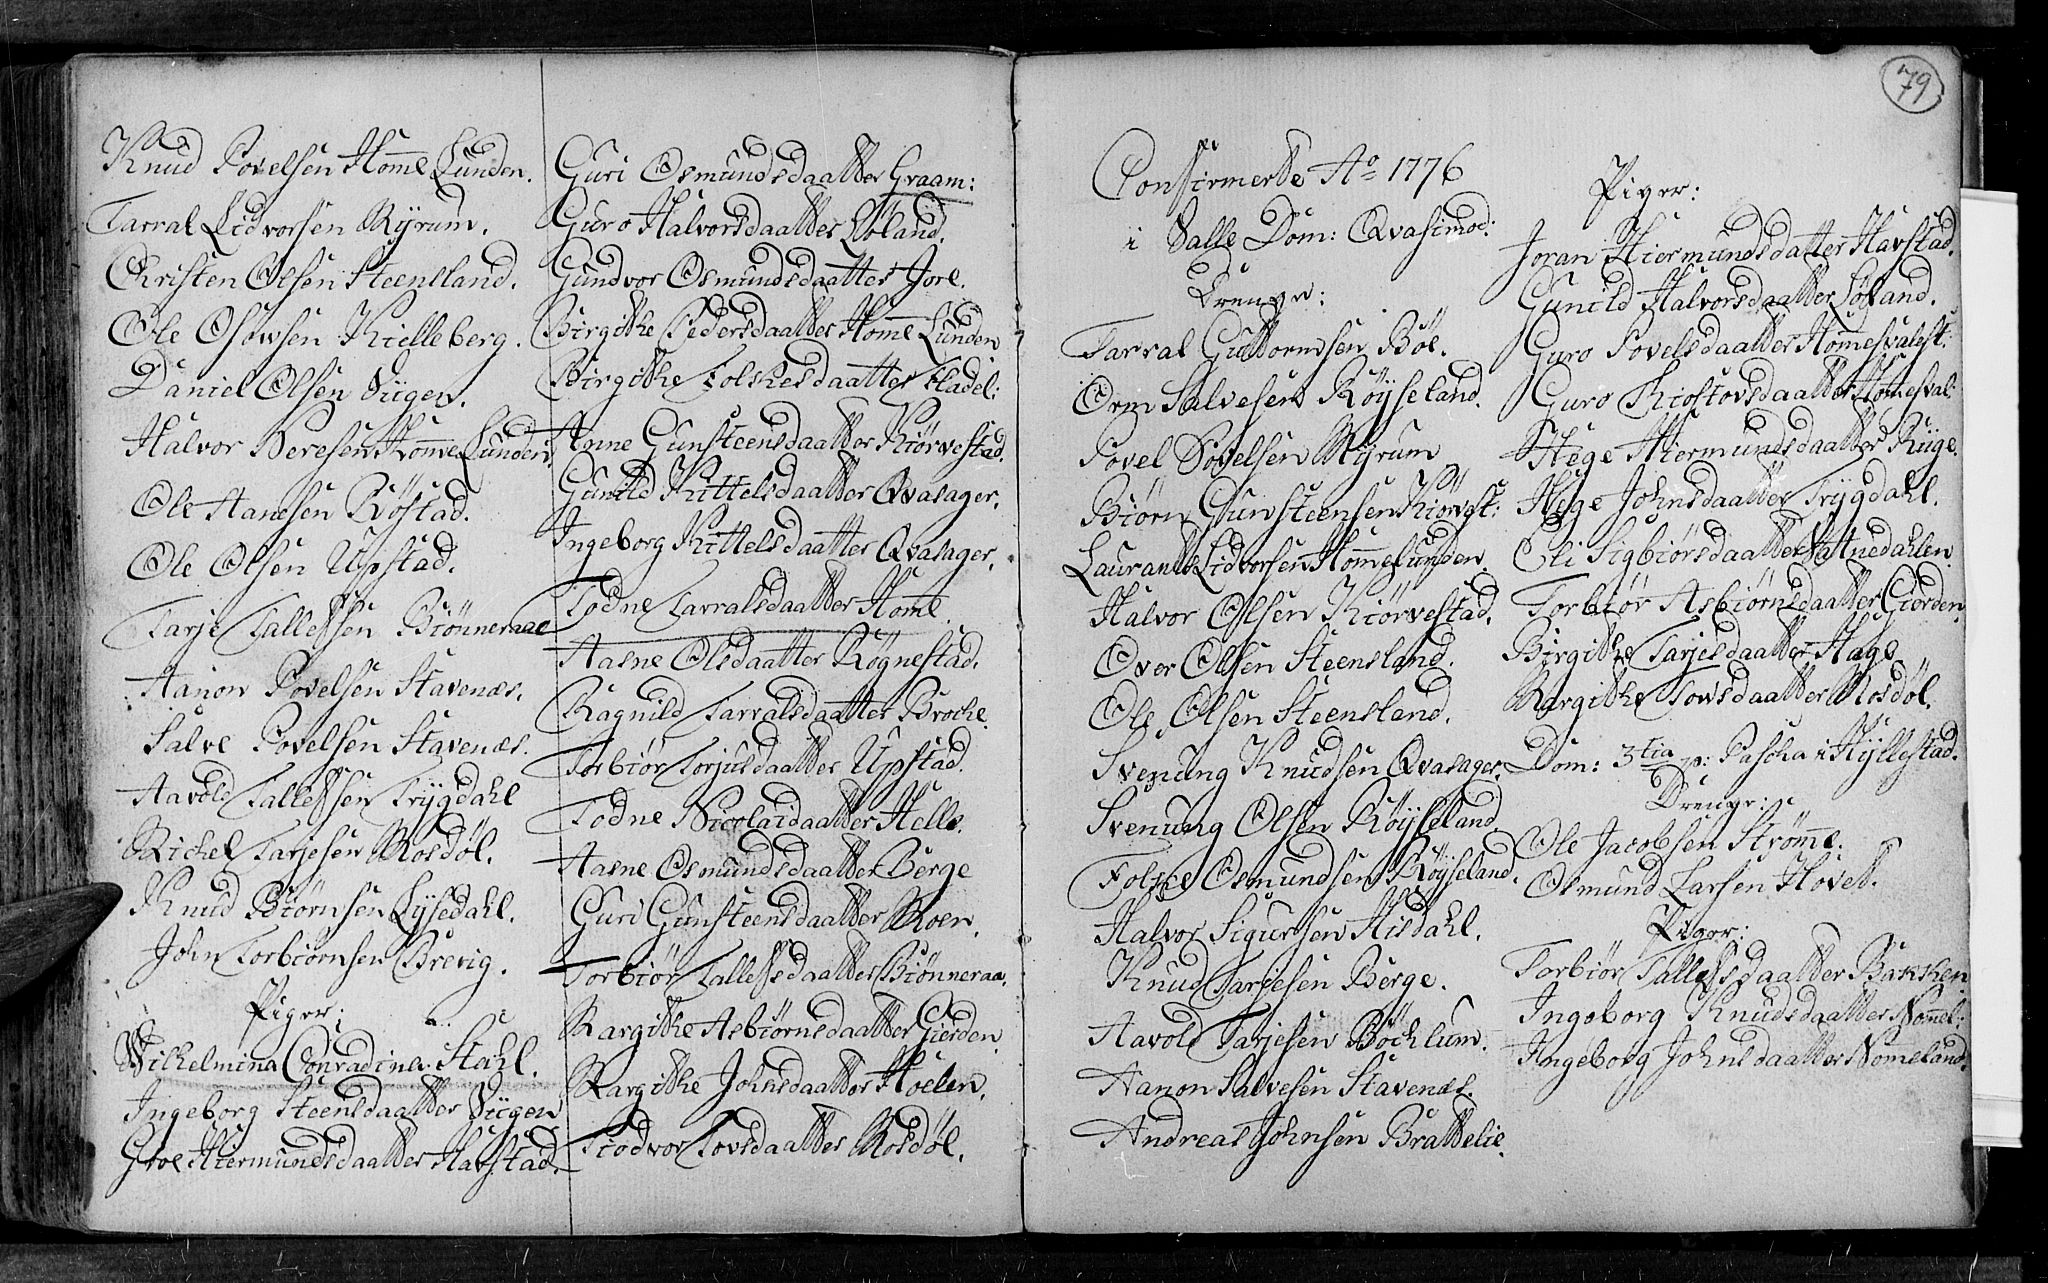 Knud Povelsen Home Lunden.
Tarral Lidvorsen Rÿrum.
Christen Olsen Steensland.
Ole Osowsen Kielleberg.
Daniel Olsen Viigen.
Halvor Beresen Home Lunden.
Ole Hansen Røstad.
Ole Olsen Upstad.
Tarje Tallefsen Biönneraae
Aanon Povelsen Stavenæs.
Salve Povelsen Stavenæs.
Aavold Tallefsen Trÿgdahl
Richel Tarjesen Rosdøl.
Knud Biörnsen Lÿsedahl.
John Torbiörnsen Brevig.
Piger:
Wilhelmina Conradina Stahl.
Ingeborg Steensdaatter Viigen
Groe Hiermundsdaatter Harstad.
Guri Osmundsdaatter Graam:
Guro Halvorsdaatter Løland.
Gundvor Osmundsdaatter Jore.
Birgithe Pedersdaatter Home Lunden
Birgithe Folkesdaatter Fladel:
Anne Gunsteensdaatter Kiörvestad.
Gunild Kittelsdaatter Qvasager.
Ingeborg Kittelsdaatter Qvasager.
Todne Tarralsdaatter Home.
Aasne Olsdaatter Røgnestad.
Ragnild Tarralsdaatter Broche.
Torbiör Torjusdaatter Upstad.
Todne Nicolaidaatter Helle.
Aasne Osmundsdaatter Berge
Guri Gunsteensdaatter Moen.
Torbiör Tallefsdaatter Biönneraa.
Margithe Asbiörnsdaatter Gierden.
Margithe Johnsdaatter Hoelen.
Tiodvor Tovsdaatter Rosdøl.
79
Confirmerte Ao 1776
i Valle Dom: Qvasimod:
Drenge:
Tarral Guttormsen Bøe.
Orm Salvesen Røÿseland.
Povel Povelsen Rÿrum
Biörn Gunsteensen Kiörvest:
Laurants Lidvorsen Homelunden.
Halvor Olsen Kiörvestad.
Over Olsen Steensland.
Ole Olsen Steensland.
Svenung Knudsen Qvasager.
Svenung Olsen Røÿseland
Folke Osmundsen Røÿseland.
Halvor Sigursen Hisdahl.
Knud Tarjesen Berge.
Aavold Tarjesen Böchlum.
Aanon Salvesen Stavenæs.
Andreas Johnsen Brattelie.
Piger:
Joran Hiermundsdatter Harstad.
Gunild Halvorsdaatter Løland.
Guro Povelsdaatter Homesvalest:
Guro Kiostovsdaatter Homesval:
Hege Hiermundsdaatter Riige.
Hege Johnsdaatter Trÿgdahl.
Eli Sigbiörsdaatter Vatnedahlen
Torbiör Asbiörnsdaatter Gierden.
Birgithe Tarjesdaatter Hage
Margithe Tovsdaatter Rosdøl.
Dom: 3tia p: Pascha i Hÿllestad.
Drenge:
Ole Jacobsen Strøme.
Osmund Larsen Hovet.
Piger:
Torbiör Tallefsdaatter Bakken
Ingeborg Knudsdaatter Nomel:
Ingeborg Johnsdaatter Nomeland.